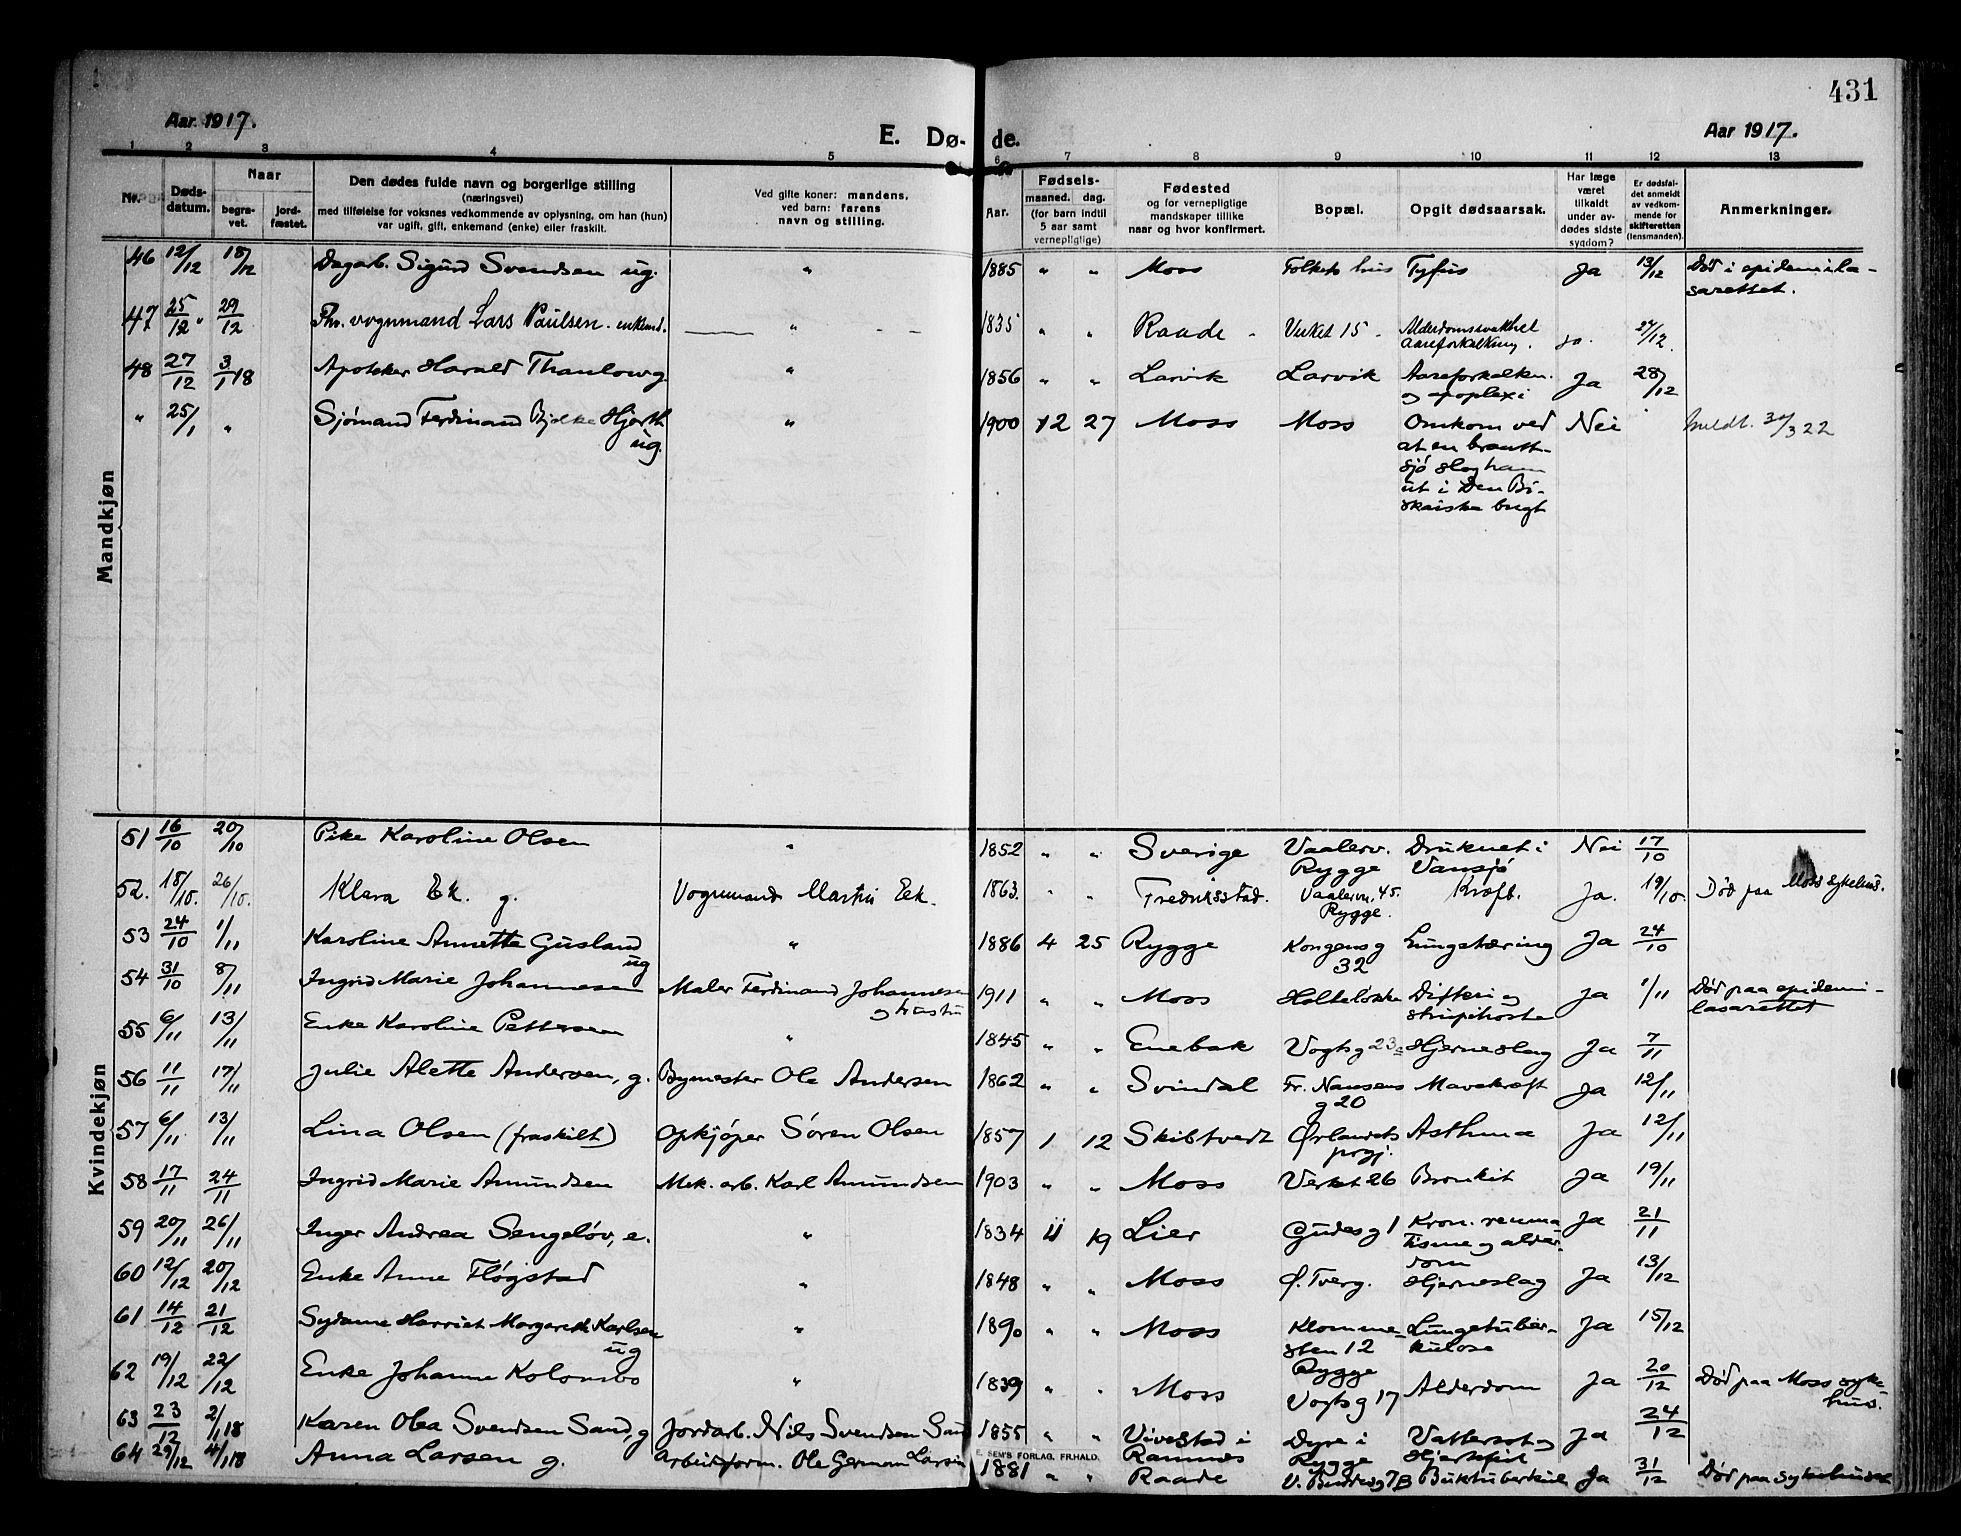 431
Aar 1917.
E. Dø- de.
Aar 1917.
1 2 3 4 5 6 7 8 9 10 11 12 13
Nr.
Døds-
datum.
Naar
begra-
vet.
jord-
fæstet.
Den dødes fulde navn og borgerlige stilling
(næringsvei)
med tilføielse for voksnes vedkommende av oplysning, om han (hun)
var ugift, gift, enkemand (enke) eller fraskilt.
Ved gifte koner: mandens,
ved barn: farens
navn og stilling.
Aar.
Fødsels-
maaned. dag.
(for barn indtil
5 aar samt
vernepligtige)
Fødested
og for vernepligtige
mandskaper tillike
naar og hvor konfirmert.
Bopæl.
Opgit dødsaarsak.
Har læge
været
tilkaldt
under av-
dødes sidste
sygdom?
Er dødsfal-
det anmeldt
av vedkom-
mende for
skifteretten
(lensmanden).
Anmerkninger.
Mandkjøn
46 12/12 18/12 Dagarb. Sigurd Svendsen ug. " 1885 " " Moss Folkets hus Tyfus Ja 13/12 Død i epidemila-
sarettet.
47 25/12 29/12 Fhv. vognmand Lars Paulsen. enkemd. " 1835 " " Raade Verket 15 Alderdomssvakhet Ja. 27/12
Aareforkalkning.
48 27/12 3/1 18 Apoteker Harald Thaulow g. " 1856 " " Larvik Larvik Aareforkalkn. Ja 28/12
og apoplexi
" 25/1 " Sjømand Ferdinand Bjelke Hjorth " 1900 12 27 Moss Moss Omkom ved Nei Meldt. 30/3 22
ug.
at en braatt-
sjø slog ham
ut i Den Bi-
skaiske bugt
Kvindekjøn
51 16/10 20/10 Pike Karoline Olsen " 1852 " " Sverige Vaalerv. Druknet i Nei 17/10
Rygge Vansjø
52. 18/10. 26/10. Klara Eek. g. Vognmand Martin Eek. 1863. " " Fredriksstad. Vaalervn. 45. Kræft. Ja. 19/10. Død paa Moss sykehus.
Rygge.
53 24/10 1/11 Karoline Annette Gusland " 1886 4 25 Rygge Kongensg Lungetæring Ja 24/10
ug 32
54 31/10 8/11 Ingrid Marie Johannesen Maler Ferdinand Johannesen 1911 " " Moss Holteløkke Difteri og Ja 1/11 Død paa epidemi-
og hustru strupehoste lasarettet
55 6/11 13/11 Enke Karoline Pettersen " 1845 " " Enebak Vogtsg 23a Hjerneslag Ja 7/11
56 11/11 17/11 Julie Alette Andersen, g. Bymester Ole Andersen 1862 " " Svindal Fr. Nansens Mavekræft Ja 12/11
g 20
57 6/11 13/11 Lina Olsen (fraskilt) Opkjøper Søren Olsen 1857 1 12 Skibtvedt Ørlandets Asthma Ja 12/11
prgj.
58 17/11 24/11 Ingrid Marie Amundsen Mek. arb. Karl Amundsen 1903 " " Moss Verket 26 Bronkit Ja 19/11
59 20/11 26/11 Inger Andrea Sengeløv, e. " 1834 11 19 Lier Gudesg 1 Kron. reuma- Ja 21/11
tisme og alder-
dom
60 12/12 20/12 Enke Anne Fløgstad " 1848 " " Moss Ø. Tverg. Hjerneslag Ja 13/12
61 14/12 21/12 Sydame Harriet Margareth Karlsen " 1890 " " Moss Klomme- Lungetuber- Ja 15/12
ug sten 12 kulose
Rygge
62 19/12 22/12 Enke Johanne Kolonbo " 1839 " " Moss Vogtsg 17 Alderdom Ja 20/12 Død paa Moss syke-
hus.
63 23/12 2/1 18 Karen Olea Svendsen Sand, g Jordarb. Nils Svendsen Sand 1855 " " Vivestad i Dyre i Vattersot og Ja 24/12
Ramnes Rygge Hjertefeil
64 29/12 4/1 18 Anna Larsen g. Arbeidsform. Ole German Larsen 1881 " " Raade V. Buddesg 7B Buktuberkul Ja 31/12 Død paa sykehuset
E. SEM'S FORLAG, FR.HALD.